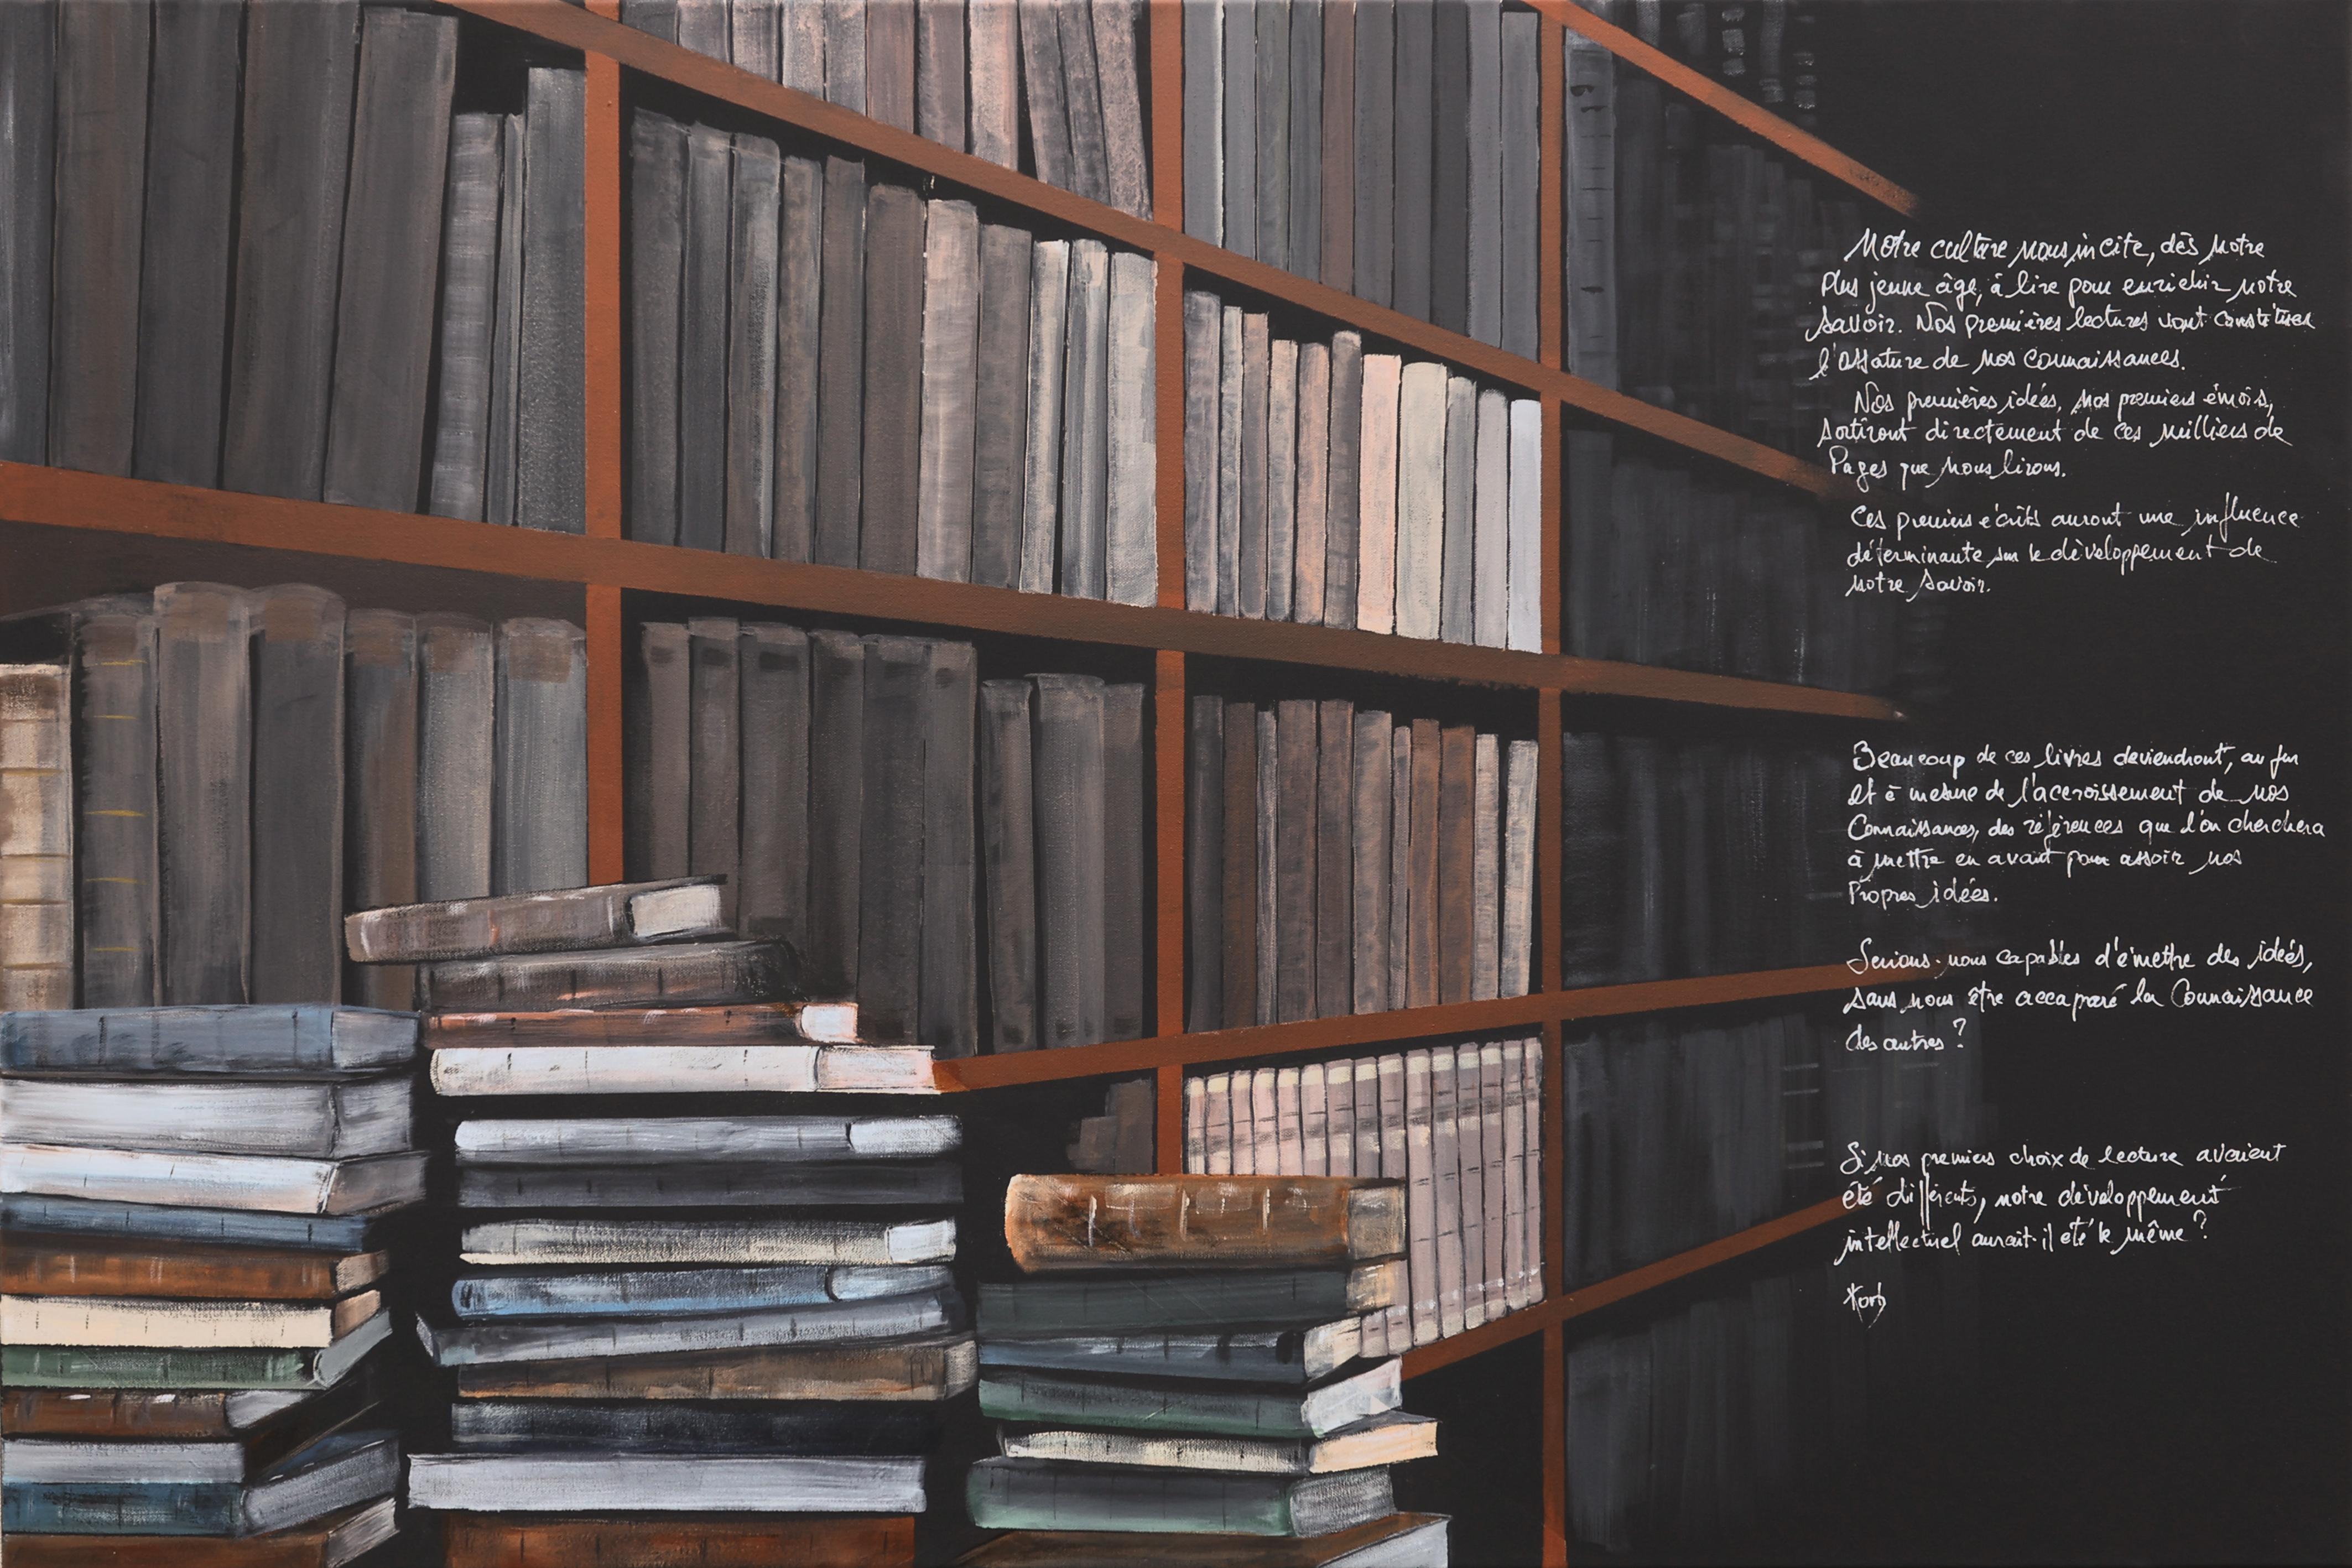 Notre culture nous incite, dès notre
plus jeune âge, à lire pour enrichir notre
savoir. Nos premières lectures vont constituer
l'ossature de nos connaissances.
Nos premières idées, nos premiers émois,
sortiront directement de ces milliers de
pages que nous lirons.
Ces premiers écrits auront une influence
déterminante sur le développement de
notre savoir.
Beaucoup de ces livres deviendront, au fur
et à mesure de l'accroissement de nos
connaissances, des références que l'on cherchera
à mettre en avant pour assoir nos
propres idées.
Serions-nous capables d'émettre des idées,
sans nous être accaparé la connaissance
des autres ?
Si nos premiers choix de lecture avaient
été différents, notre développement
intellectuel aurait-il été le même ?